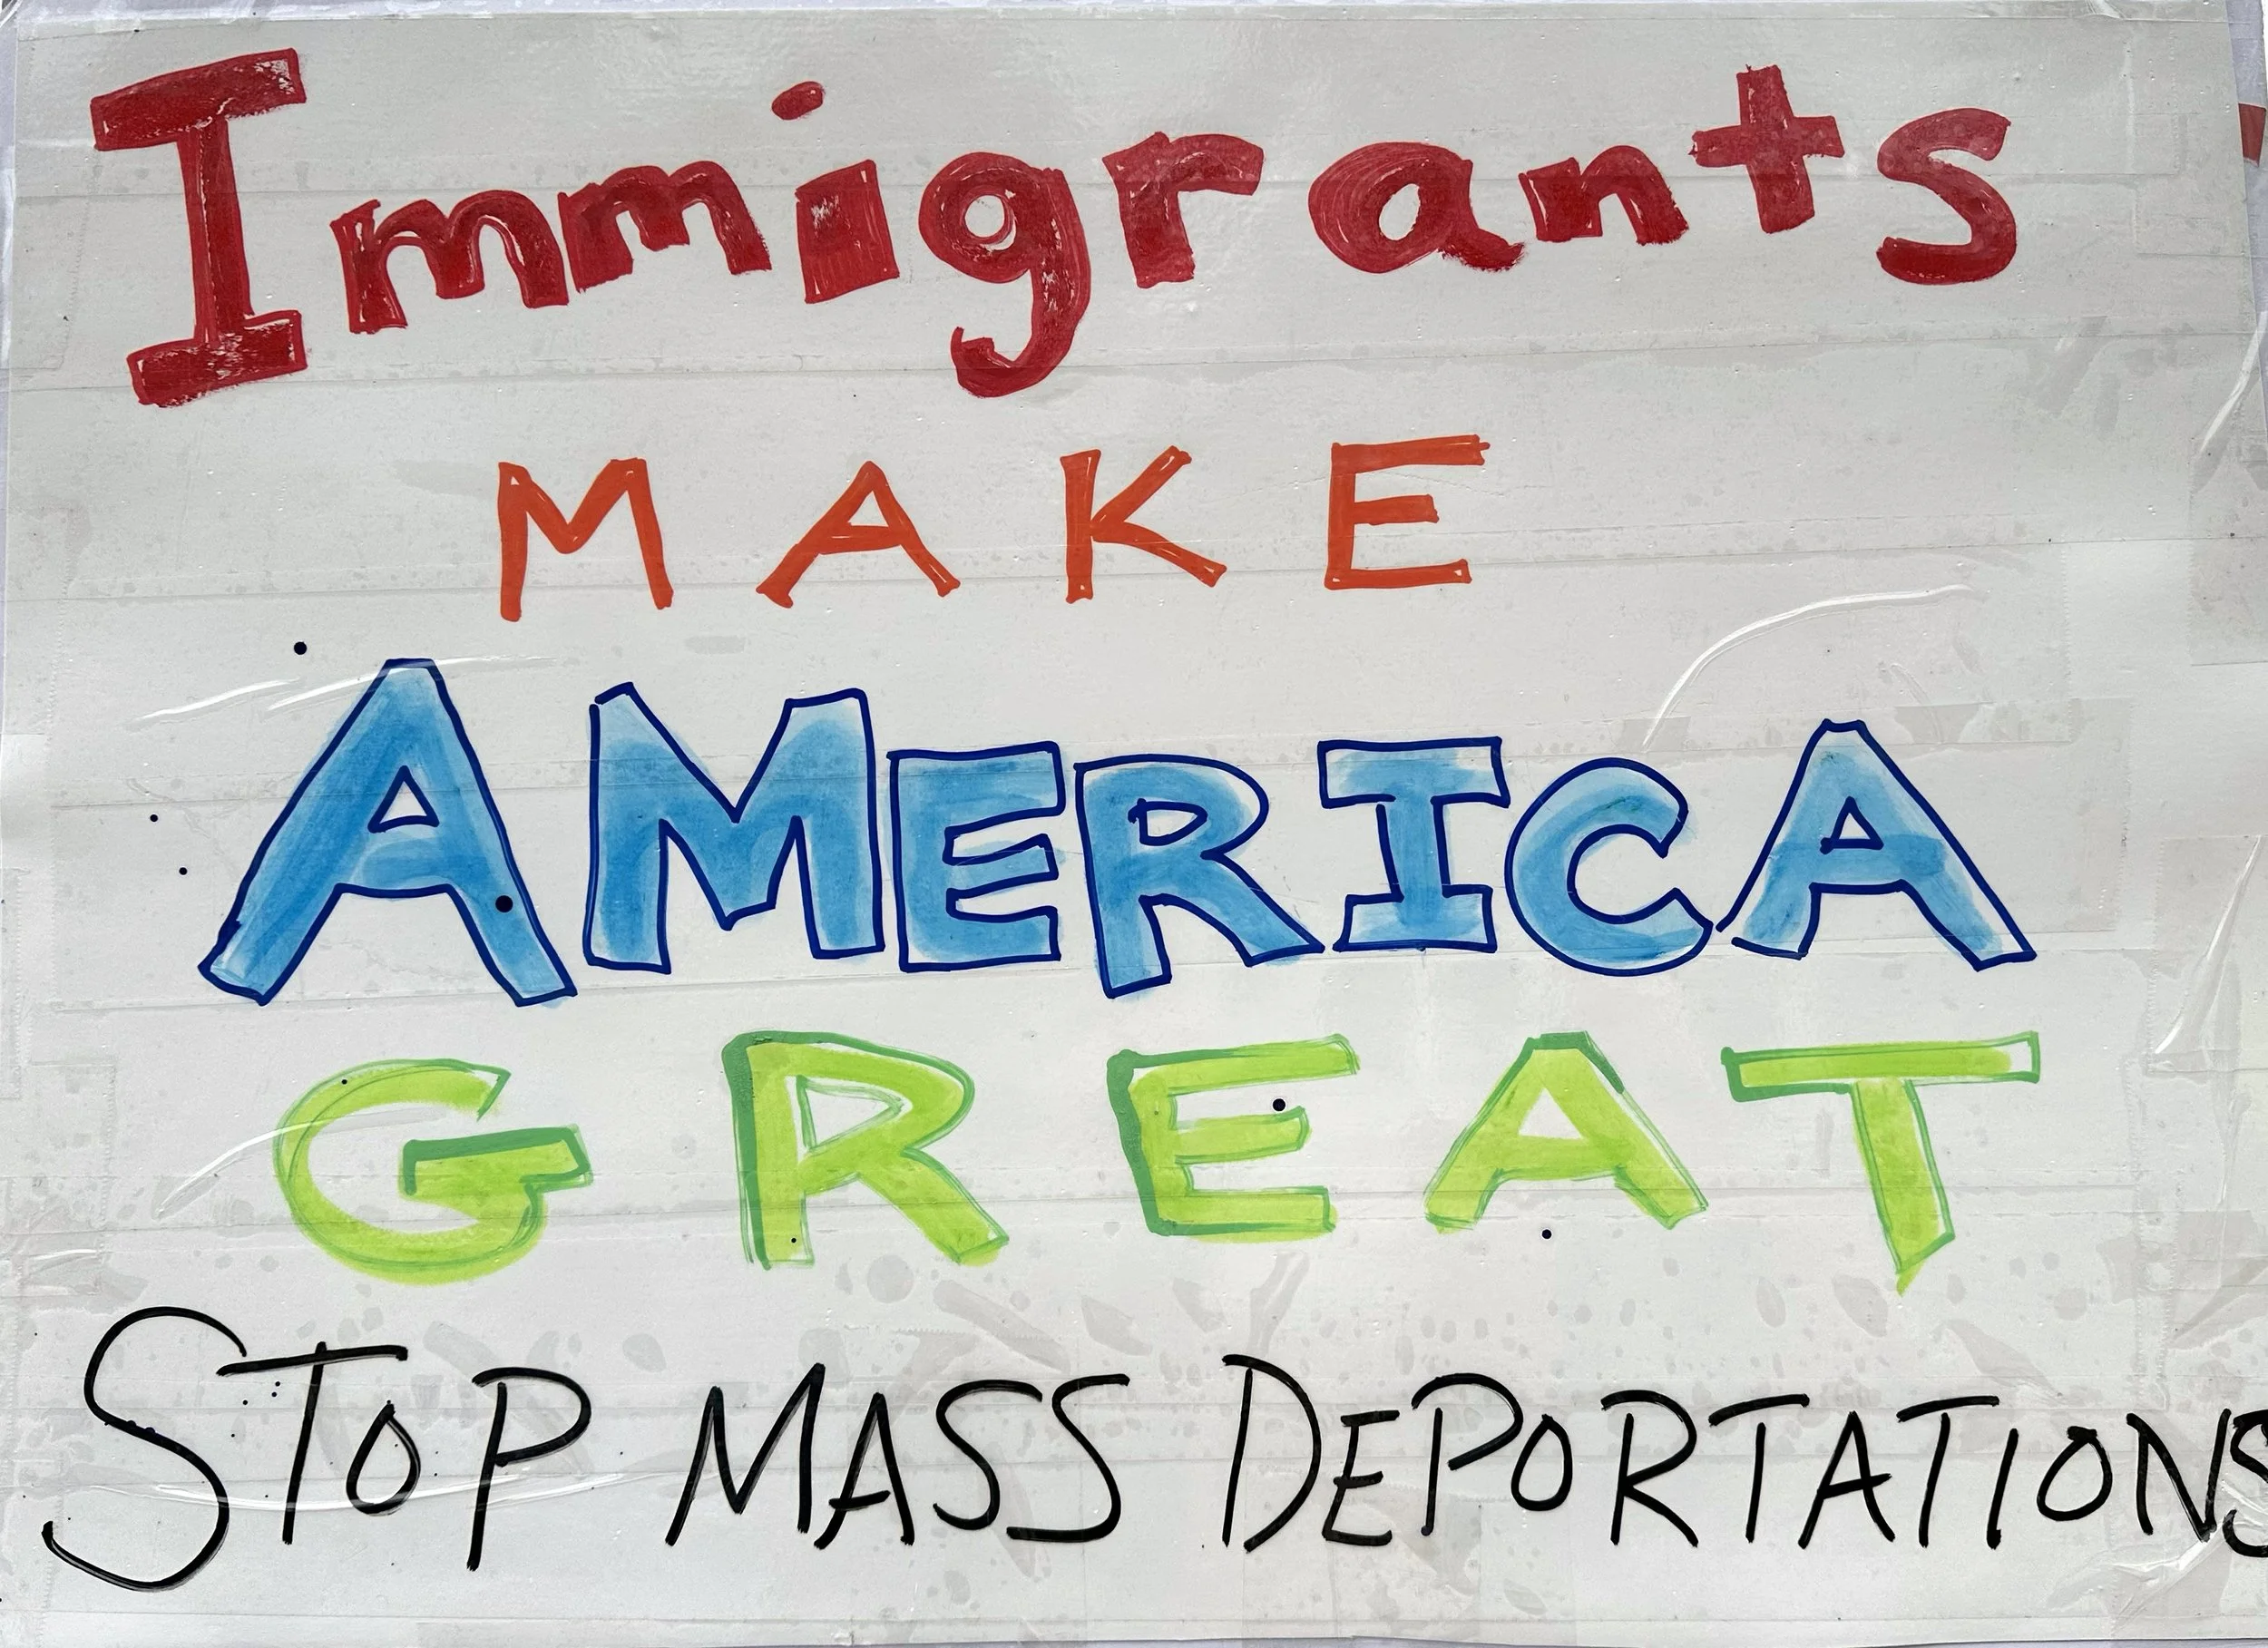 Immigrants
MAKE
AMERICA
GREAT
STOP MASS DEPORTATIONS